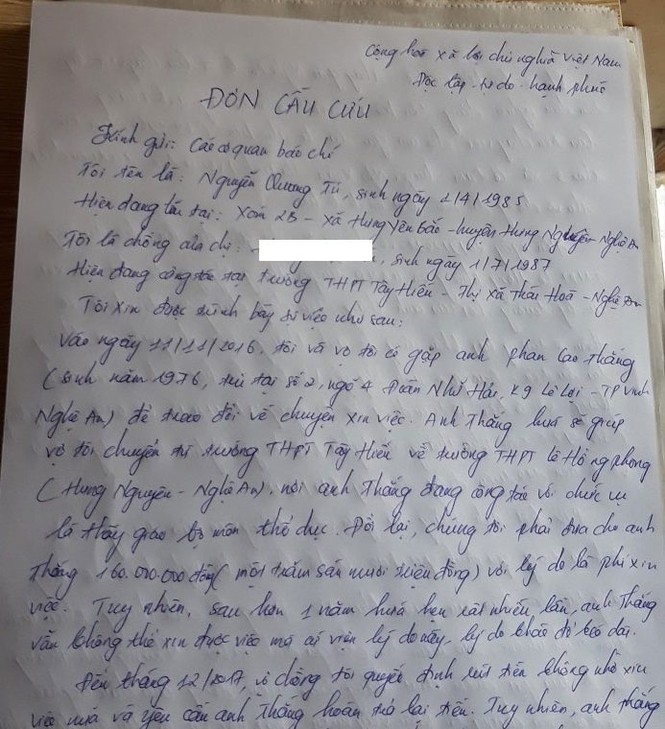 Cộng hoà xã hội chủ nghĩa Việt Nam
Độc lập - tự do - hạnh phúc
ĐƠN CẦU CỨU
Kính gửi: Các cơ quan báo chí
Tôi tên là: Nguyễn Chương Tú, sinh ngày 2/4/1985
Hiện đang trú tại: Xóm 2B - xã Hưng Yên Bắc - huyện Hưng Nguyên - Nghệ An
Tôi là chồng của chị: , sinh ngày 1/7/1987
Hiện đang công tác tại trường THPT Tây Hiếu - Thị xã Thái Hoà - Nghệ An
Tôi xin được trình bày sự việc như sau:
Vào ngày 11/11/2016, tôi và vợ tôi có gặp anh phan Cao Thắng
(sinh năm 1976, trú tại số 2, ngõ 4 Đoàn Nhữ Hải, K9 Lê Lợi - TP Vinh
Nghệ An) để trao đổi về chuyện xin việc. Anh Thắng hứa sẽ giúp
vợ tôi chuyển từ trường THPT Tây Hiếu về trường THPT Lê Hồng phong
(Hưng Nguyên - Nghệ An), nơi anh Thắng đang công tác với chức vụ
là thầy giáo bộ môn thể dục. Đổi lại, chúng tôi phải đưa cho anh
Thắng 160.000.000 đồng (một trăm sáu mươi triệu đồng) với lý do là phí xin
việc. Tuy nhiên, sau hơn 1 năm hứa hẹn rất nhiều lần, anh Thắng
vẫn không thể xin được việc mà cứ viện lý do này, lý do khác để kéo dài.
Đến tháng 12/2017, vợ chồng tôi quyết định rút tiền không nhờ xin
việc nữa và yêu cầu anh Thắng hoàn trả lại tiền. Tuy nhiên, anh Thắng